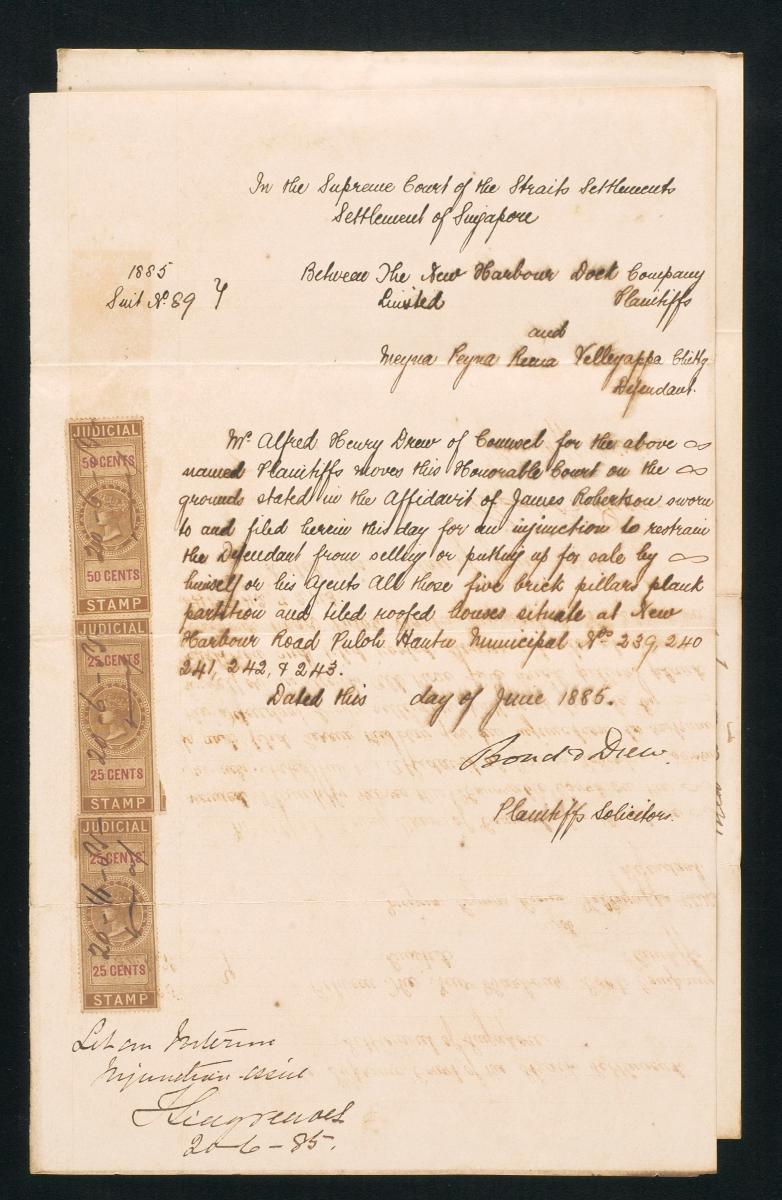 In the Supreme Court of the Straits Settlements
Settlement of Singapore
1885
Suit No. 89
Between The New Harbour Dock Company
Limited Plaintiffs
and
Meyna Peyna Reena Velleyappa Chitty
Defendant.
Mr Alfred Henry Drew of Counsel for the above
named Plaintiffs moves this Honorable Court on the
grounds stated in the Affidavit of James Robertson sworn
to and filed herein this day for an injunction to restrain
the Defendant from selling or putting up for sale by
himself or his Agents All those five brick pillars plank
partition and tiled roofed houses situate at New
Harbour Road Puloh Hantu Municipal Nos 239, 240
241, 242, & 243.
Dated this day of June 1885.
Bond & Drew.
Plaintiffs Solicitors.
JUDICIAL
50 CENTS
50 CENTS
STAMP
JUDICIAL
25 CENTS
25 CENTS
STAMP
JUDICIAL
25 CENTS
25 CENTS
STAMP
Let an Interim
Injunction issue
20-6-85.